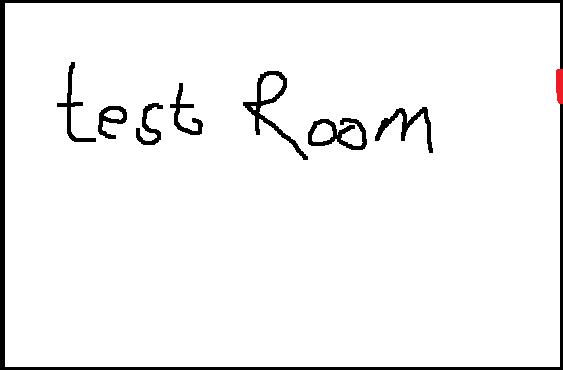 test Room